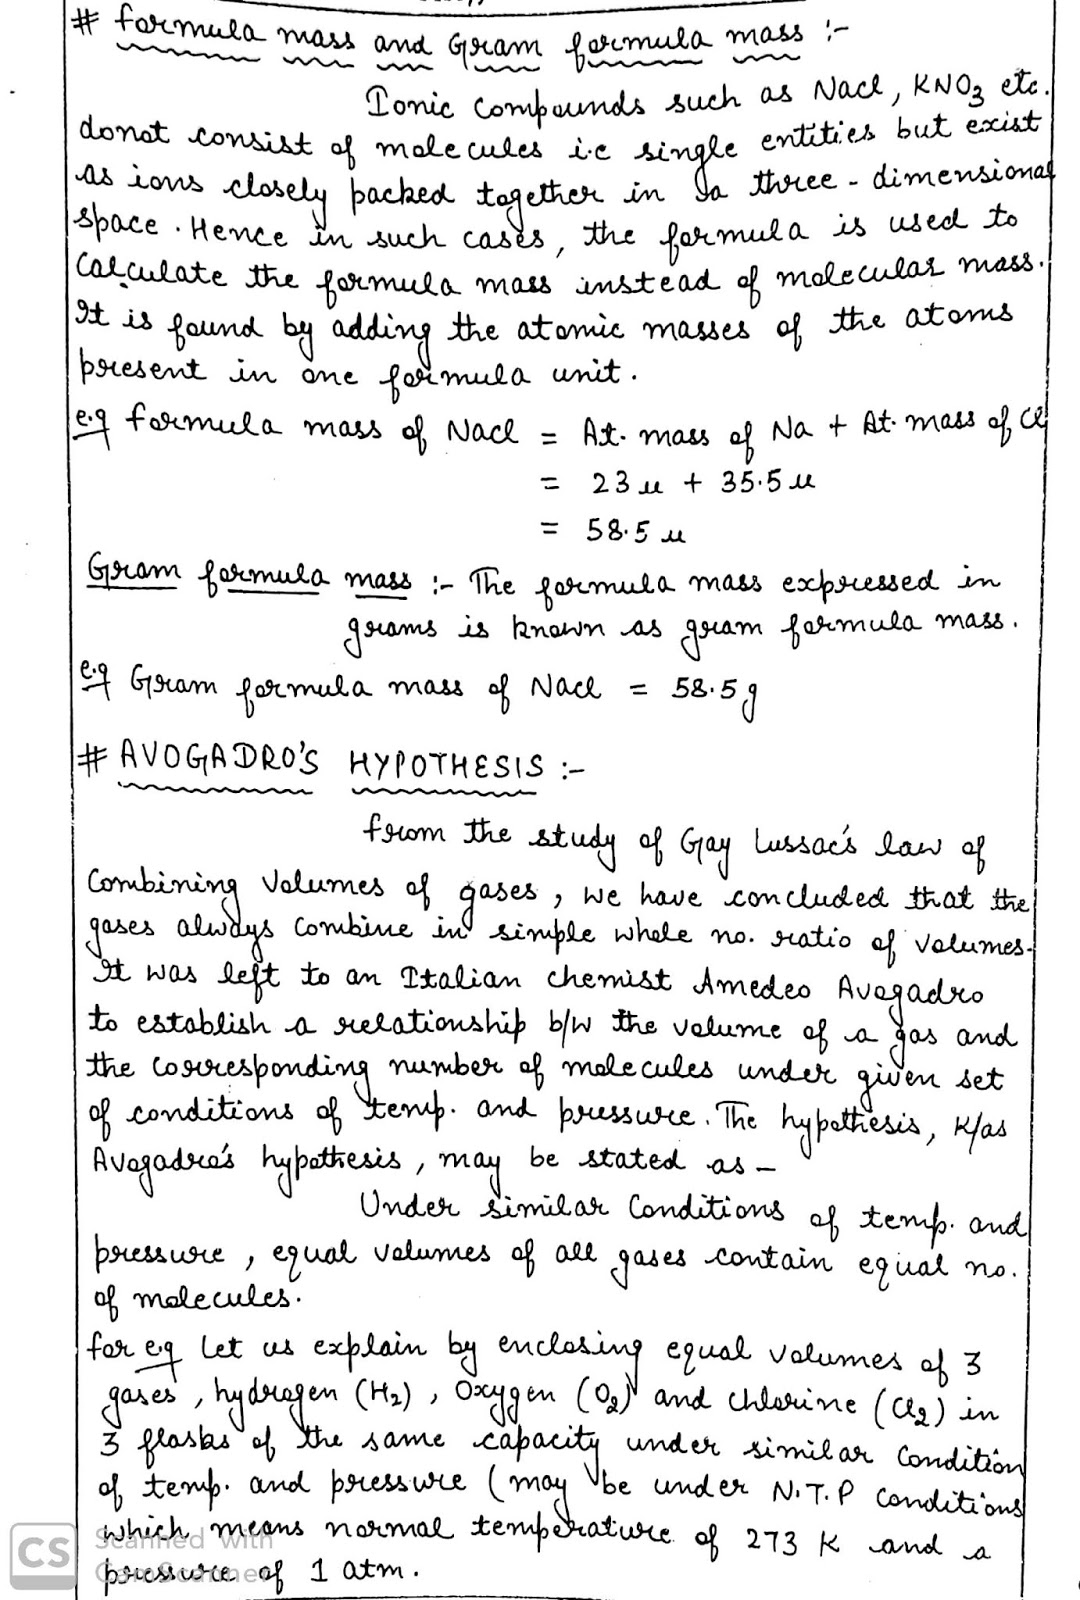 # formula mass and Gram formula mass :-
Ionic compounds such as Nacl, KNO3 etc.
donot consist of molecules i.e single entities but exist
as ions closely packed together in a three - dimensional
space. Hence in such cases, the formula is used to
Calculate the formula mass instead of molecular mass.
It is found by adding the atomic masses of the atoms
present in one formula unit.
e.g formula mass of Nacl = At. mass of Na + At. mass of Cl
= 23 u + 35.5 u
= 58.5 u
Gram formula mass :- The formula mass expressed in
grams is known as gram formula mass.
e.g Gram formula mass of Nacl = 58.5 g
# AVOGADRO'S HYPOTHESIS :-
from the study of Gay Lussac's law of
Combining Volumes of gases, we have concluded that the
gases always combine in simple whole no. ratio of volumes.
It was left to an Italian chemist Amedeo Avogadro
to establish a relationship b/w the volume of a gas and
the corresponding number of molecules under given set
of conditions of temp. and pressure. The hypothesis, K/as
Avogadro's hypothesis, may be stated as -
Under similar Conditions of temp. and
pressure, equal volumes of all gases contain equal no.
of molecules.
for e.g Let us explain by enclosing equal volumes of 3
gases, hydrogen (H2), Oxygen (O2) and chlorine (Cl2) in
3 flasks of the same capacity under similar Condition
of temp. and pressure ( may be under N.T.P Conditions
which means normal temperature of 273 K and a
pressure of 1 atm.
CS Scanned with
CamScanner